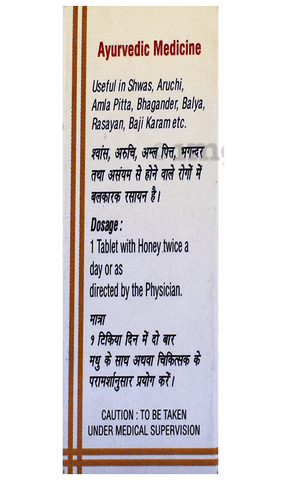 Ayurvedic Medicine
Useful in Shwas, Aruchi,
Amla Pitta, Bhagander, Balya,
Rasayan, Baji Karam etc.
श्वांस, अरुचि, अम्ल पित्त, भगन्दर
तथा असंयम से होने वाले रोगों में
बलकारक रसायन है।
Dosage :
1 Tablet with Honey twice a
day or as
directed by the Physician.
मात्रा
१ टिकिया दिन में दो बार
मधु के साथ अथवा चिकित्सक के
परामर्शानुसार प्रयोग करें।
CAUTION : TO BE TAKEN
UNDER MEDICAL SUPERVISION